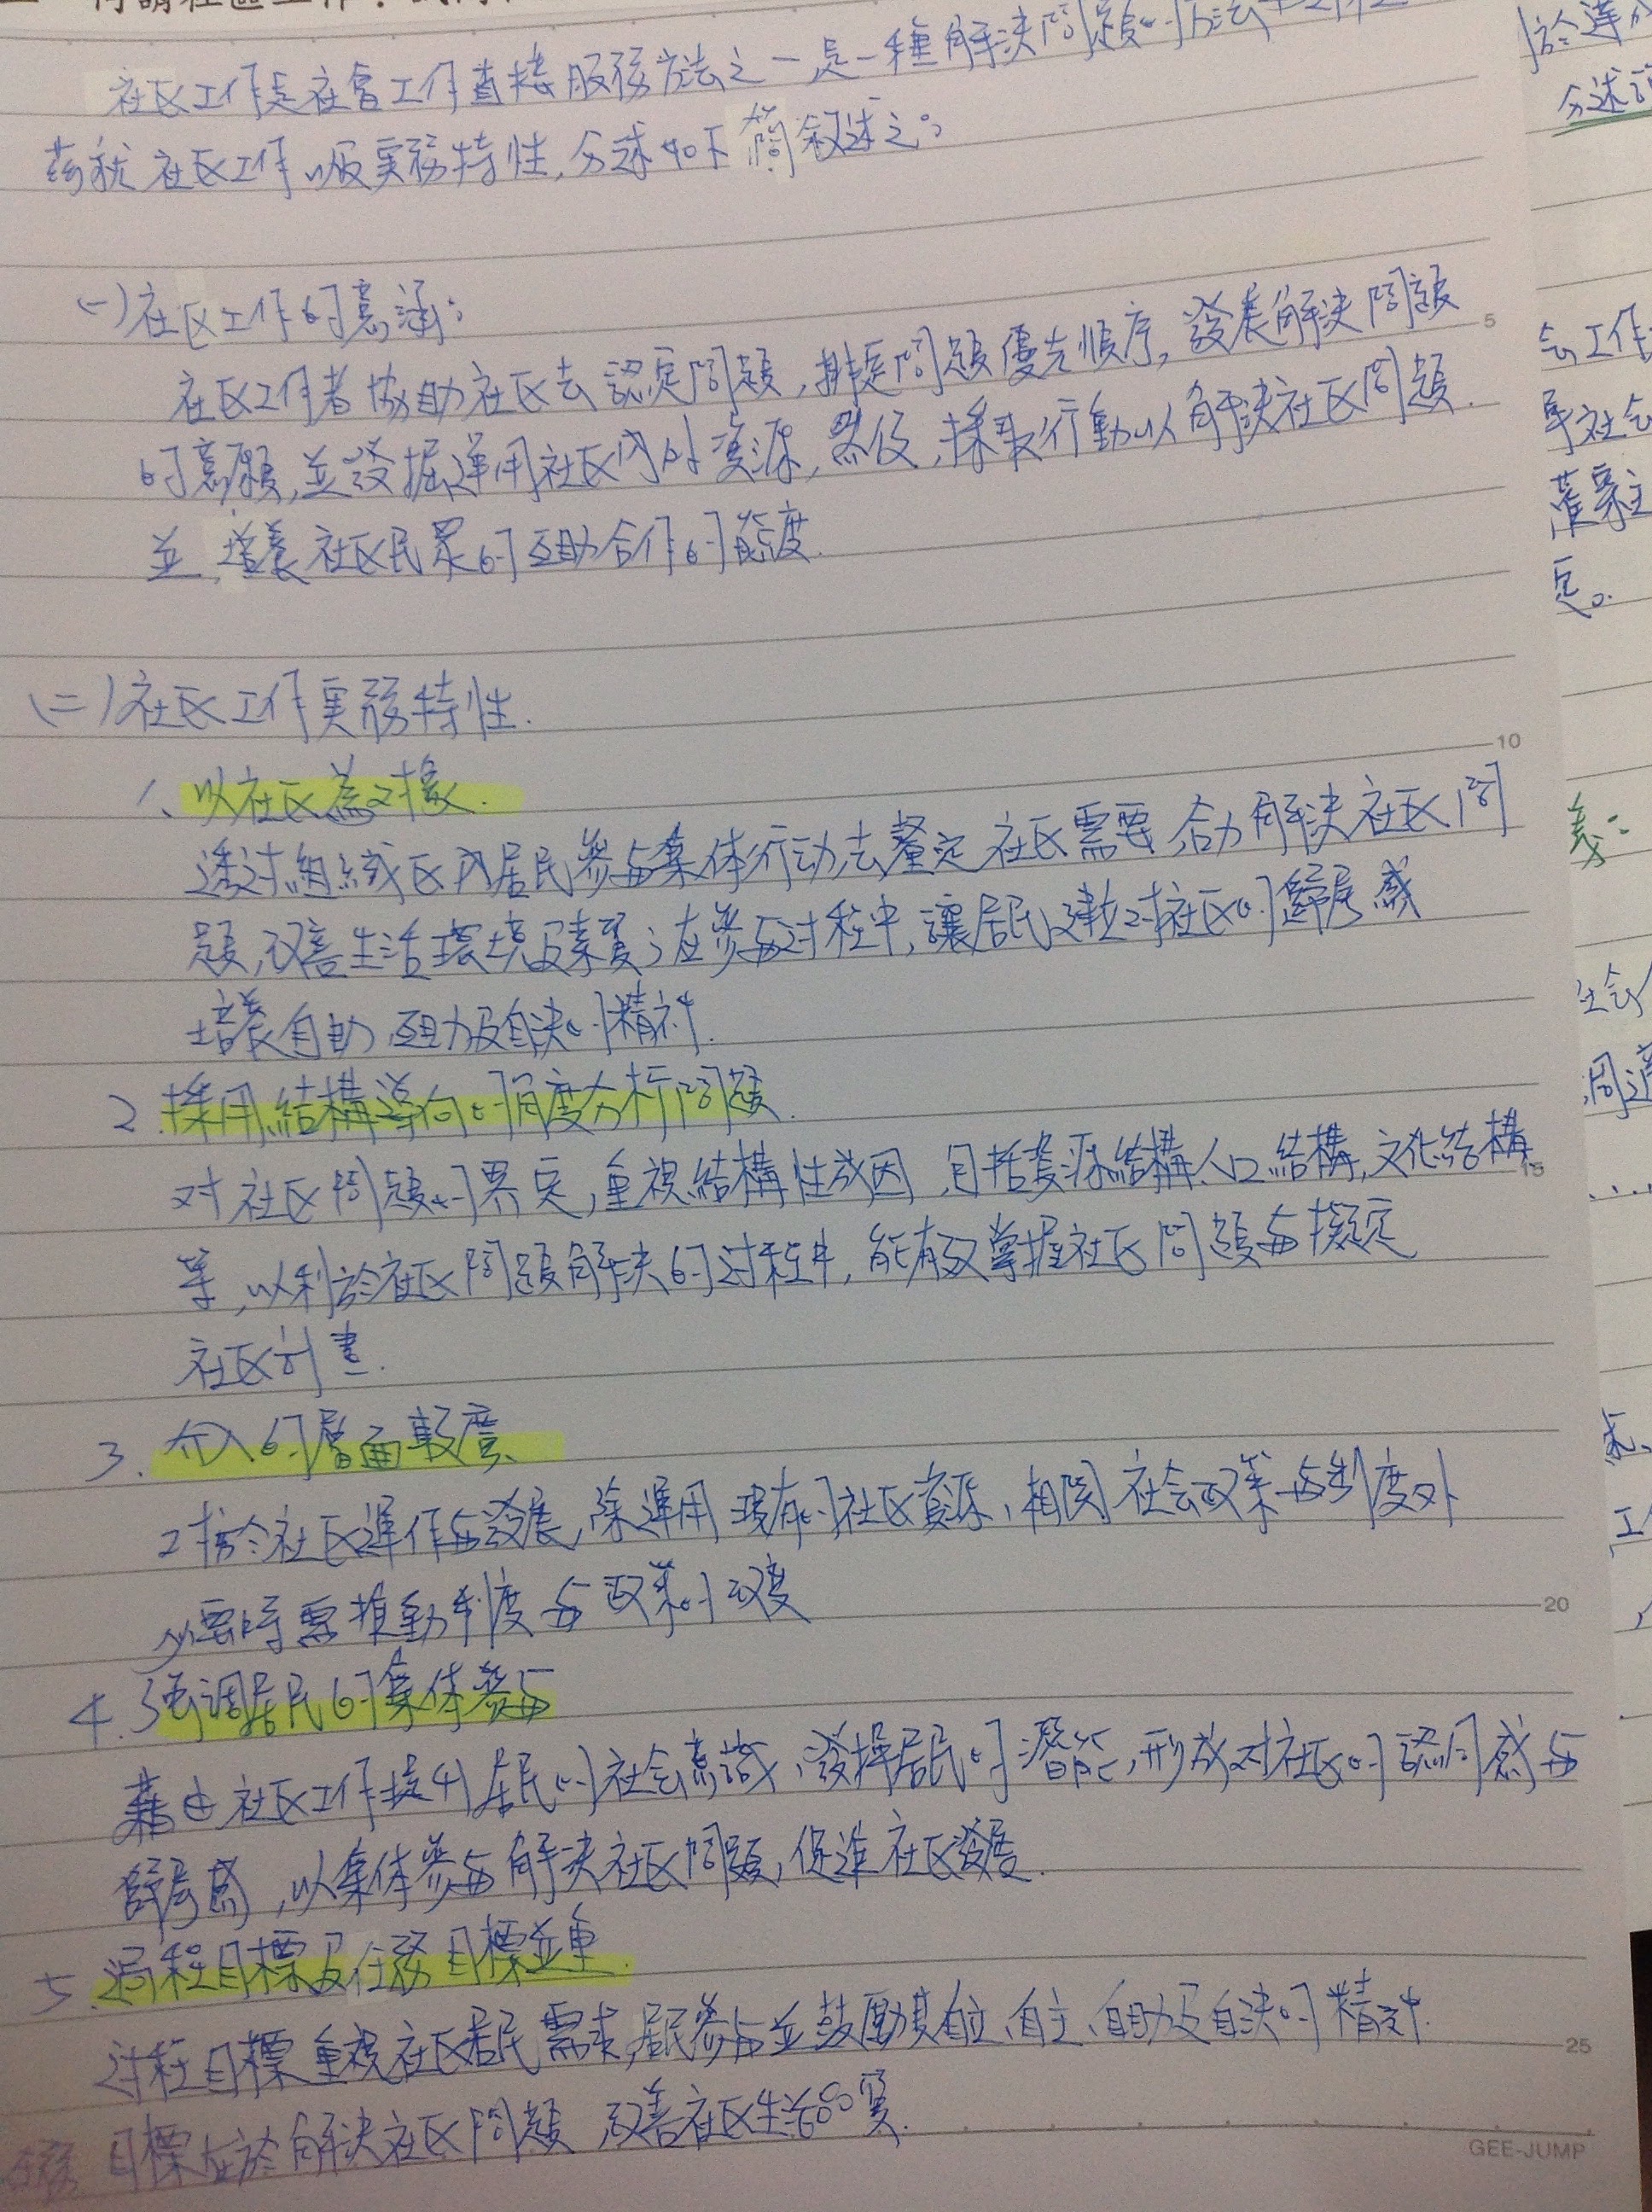 社區工作是社會工作直接服務方法之一是一種解決問題的方法
茲就社區工作以及實務特性,分述如下簡敘述之。
(一)社區工作的意涵:
社區工作者協助社區去認定問題,排定問題優先順序,發展解決問題
5
的意願,並發掘運用社區內外資源,然後,採取行動以解決社區問題.
並培養社區民眾的互助合作的態度.
(二)社區工作實務特性.
10
1、以社區為對象.
透过組織区內居民參与集体行动去釐定社區需要 合力解決社区問
題,改善生活環境及素質;在參与过程中,讓居民建立对社区的歸屬感
培養自助 互助及自決的精神.
2.採用結構導向的角度分析問題.
对社区問題的界定,重視結構性成因,包括資源結構、人口結構,文化結構
15
等,以利於社区問題解決的过程中,能有效掌握社区問題与擬定
社區計畫.
3.介入的層面較廣、
对於社区運作与發展,除運用現有的社区資源、相関社会政策与制度外
必要時需推動制度与政策的改變
20
4.强調居民的集体參与
藉由社區工作提升居民的社会意識、發揮居民的潛能,形成对社区的認同感与
歸屬感,以集体參与解決社区問題,促進社区發展.
5.過程目標及任務目標並重.
过程目標重視社区居民需求,居民參与並鼓勵其自立、自主、自助及自決的精神.
25
任務目標在於解決社区問題,改善社区生活品質.
GEE-JUMP
分述
会工作
定。
義:
社会